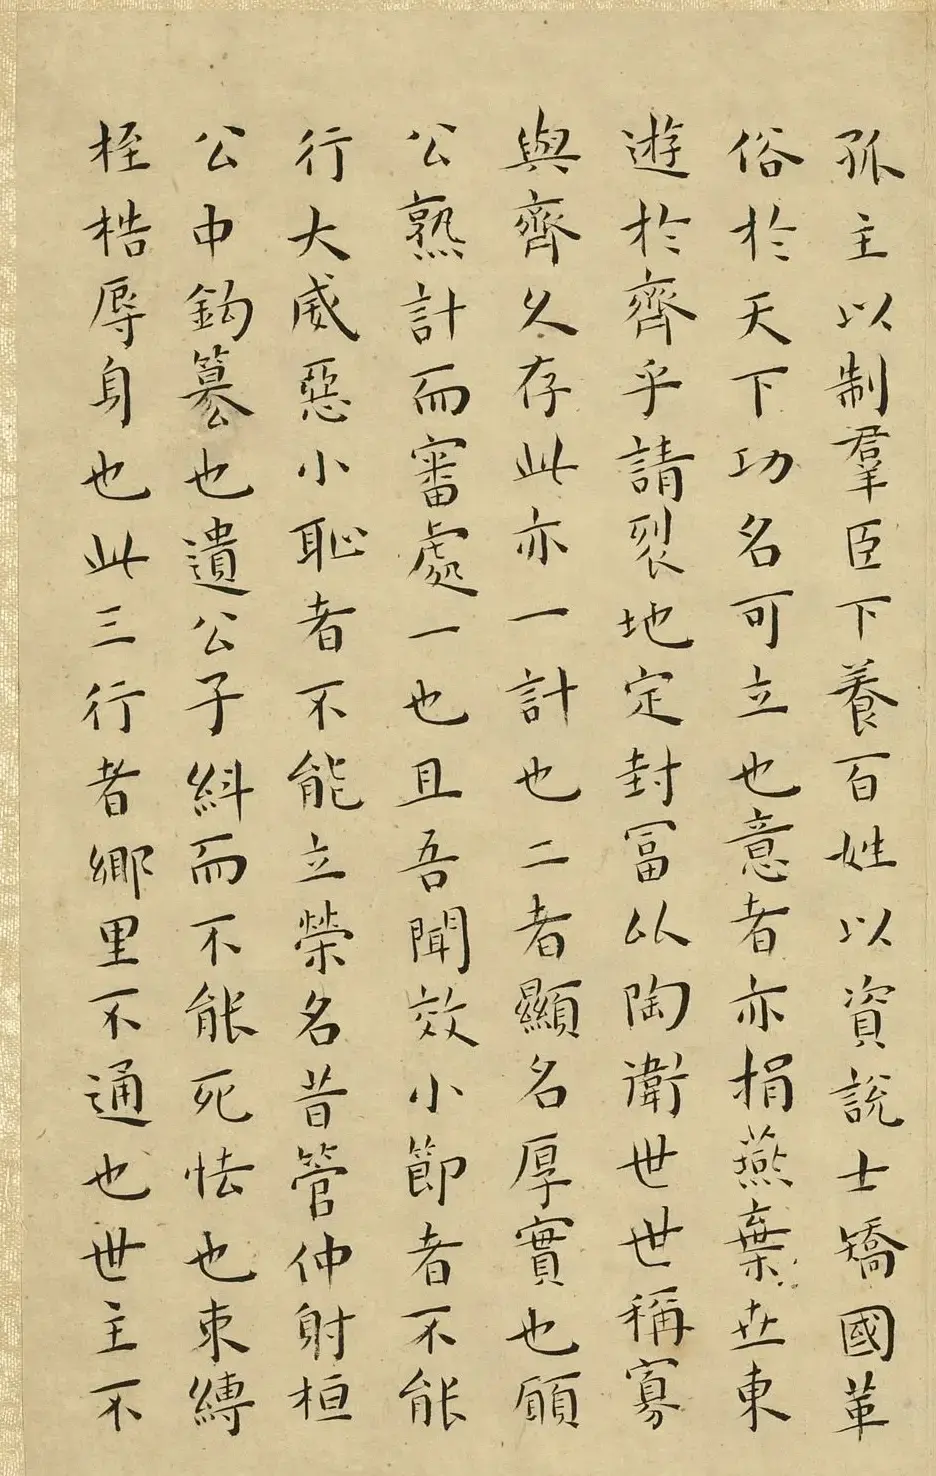 孤主以制羣臣下養百姓以資說士矯國革
俗於天下功名可立也意者亦捐燕棄世東
遊於齊乎請裂地定封富以陶衛世世稱寡
與齊久存此亦一計也二者顯名厚實也願
公熟計而審處一也且吾聞效小節者不能
行大威惡小恥者不能立榮名昔管仲射桓
公中鉤篡也遺公子糾而不能死怯也束縛
桎梏辱身也此三行者鄉里不通也世主不